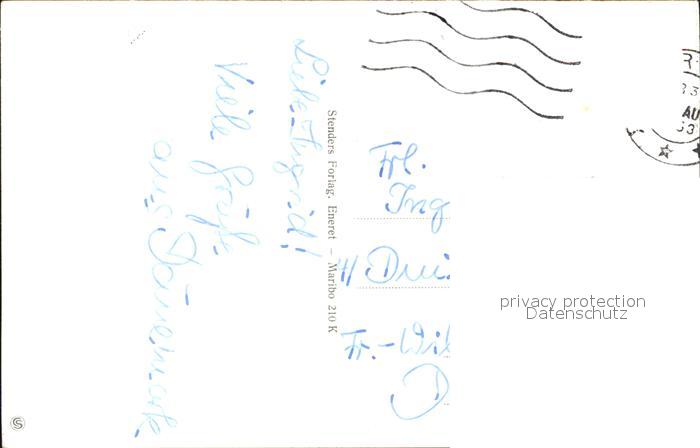 Liebe Ingrid!
Viele Grüße
aus Dänemark
Stenders Forlag, Eneret – Maribo 210 K
Frl.
Ing
Fr.-Wil
AU
privacy protection
Datenschutz